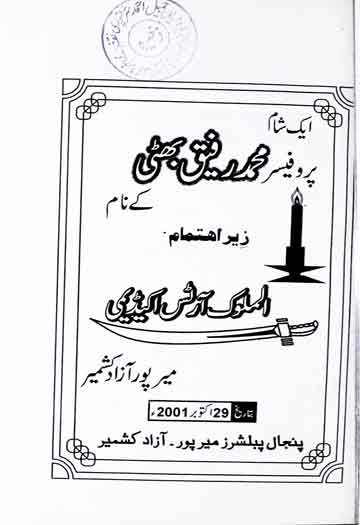 ایک شام
پروفیسر محمد رفیق بھٹی
کے نام
زیر اہتمام
الملوک آرٹس اکیڈیمی
میرپور آزاد کشمیر
بتاریخ 29 اکتوبر 2001ء
پنجال پبلشرز میرپور۔ آزاد کشمیر